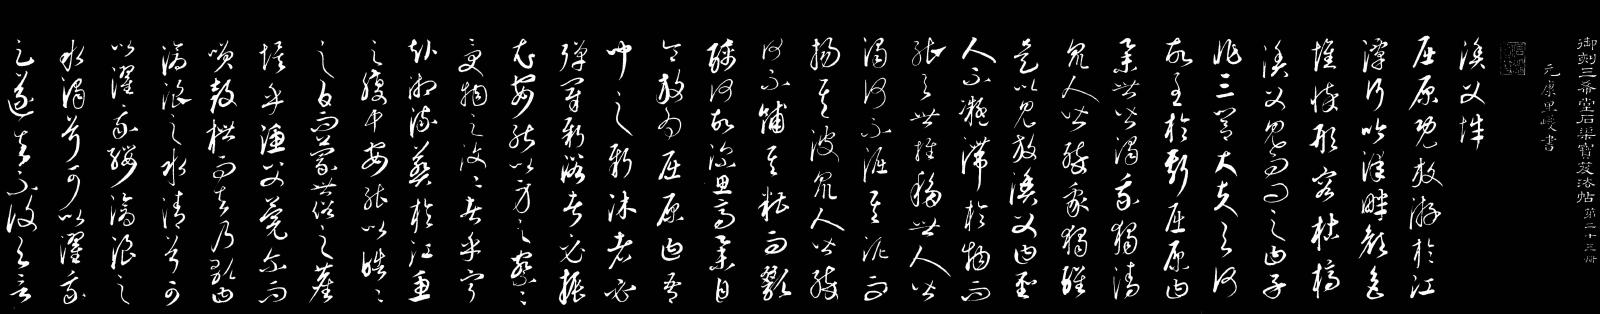 御刻三希堂石渠寶笈法帖第二十三冊
元康里巎書
漁父辭
屈原既放游於江
潭行吟澤畔顏色
憔悴形容枯槁
漁父見而問之曰子
非三閭大夫與何
故至於斯屈原曰
舉世皆濁我獨清
眾人皆醉我獨醒
是以見放漁父曰聖
人不凝滯於物而
能與世推移世人皆
濁何不淈其泥而
揚其波眾人皆醉
何不餔其糟而歠
醨何故深思高舉自
令放為屈原曰吾
聞之新沐者必
彈冠新浴者必振
衣安能以身之察察
受物之汶汶者乎寧
赴湘流葬於江魚
之腹中安能以皓皓
之白而蒙世俗之塵
埃乎漁父莞爾而
笑鼓枻而去乃歌曰
滄浪之水清兮可
以濯我纓滄浪之
水濁兮可以濯我
足遂去不復與言